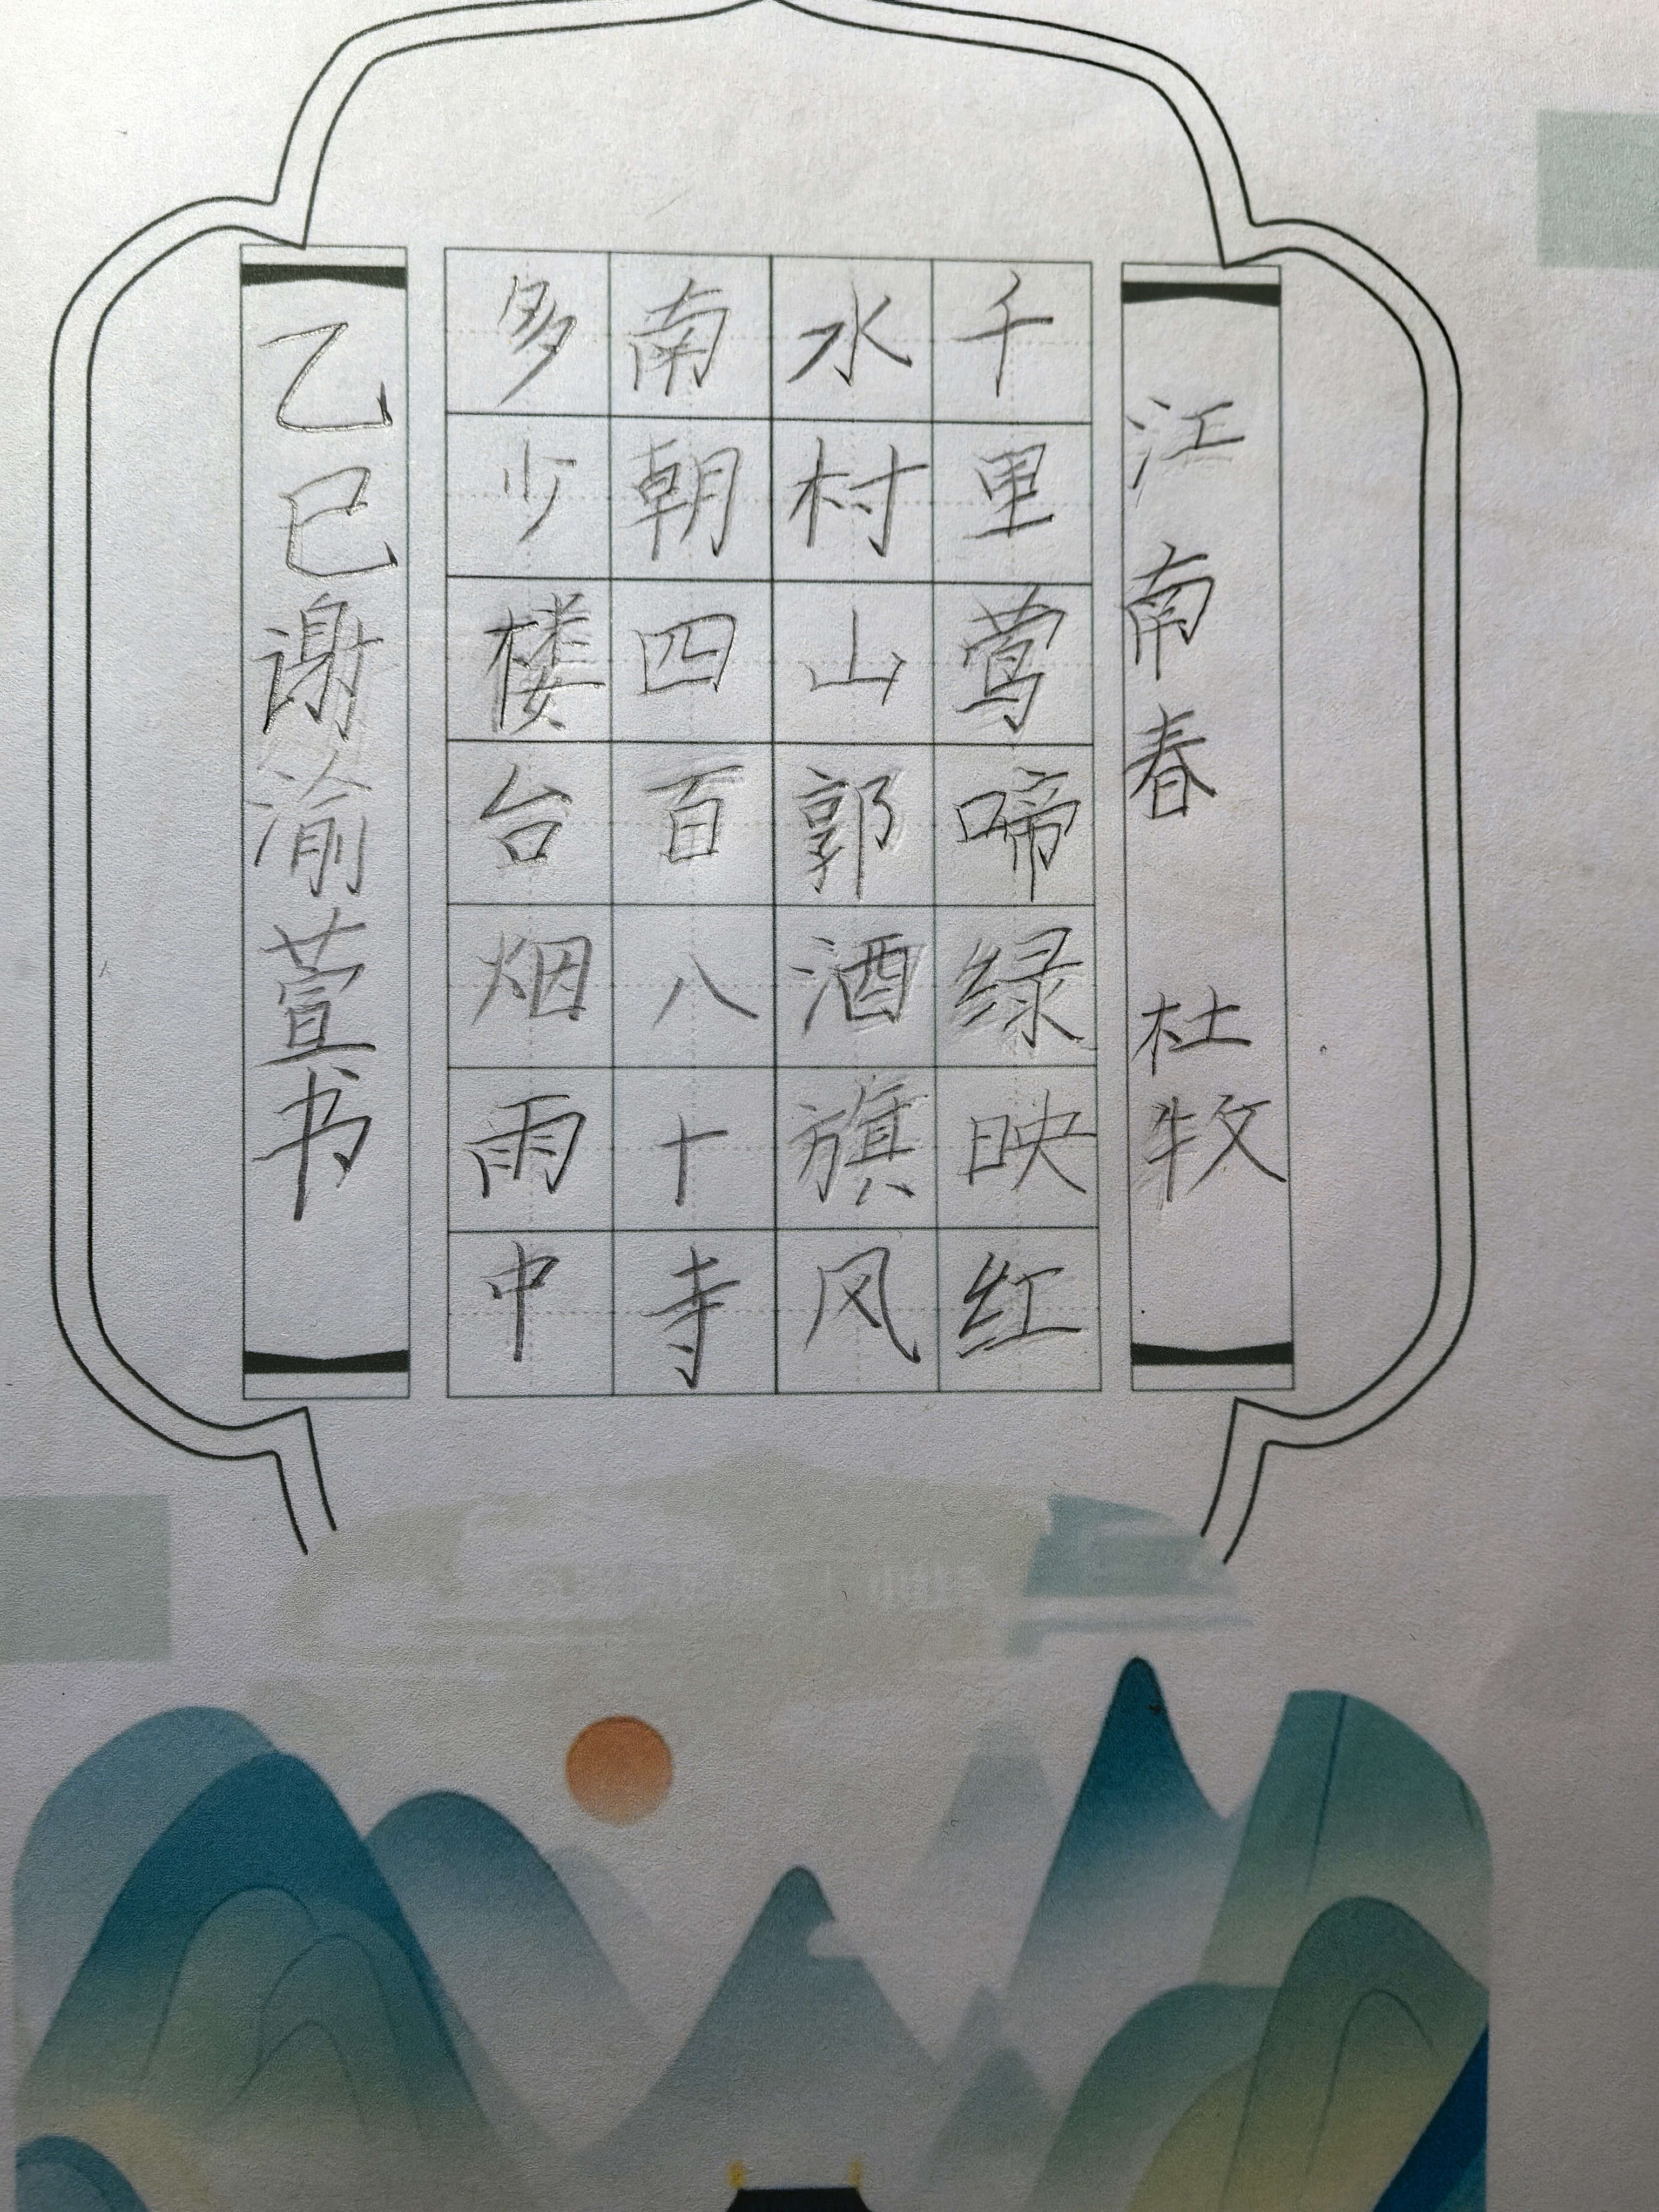 江南春 杜牧
千里莺啼绿映红
水村山郭酒旗风
南朝四百八十寺
多少楼台烟雨中
乙巳谢渝萱书